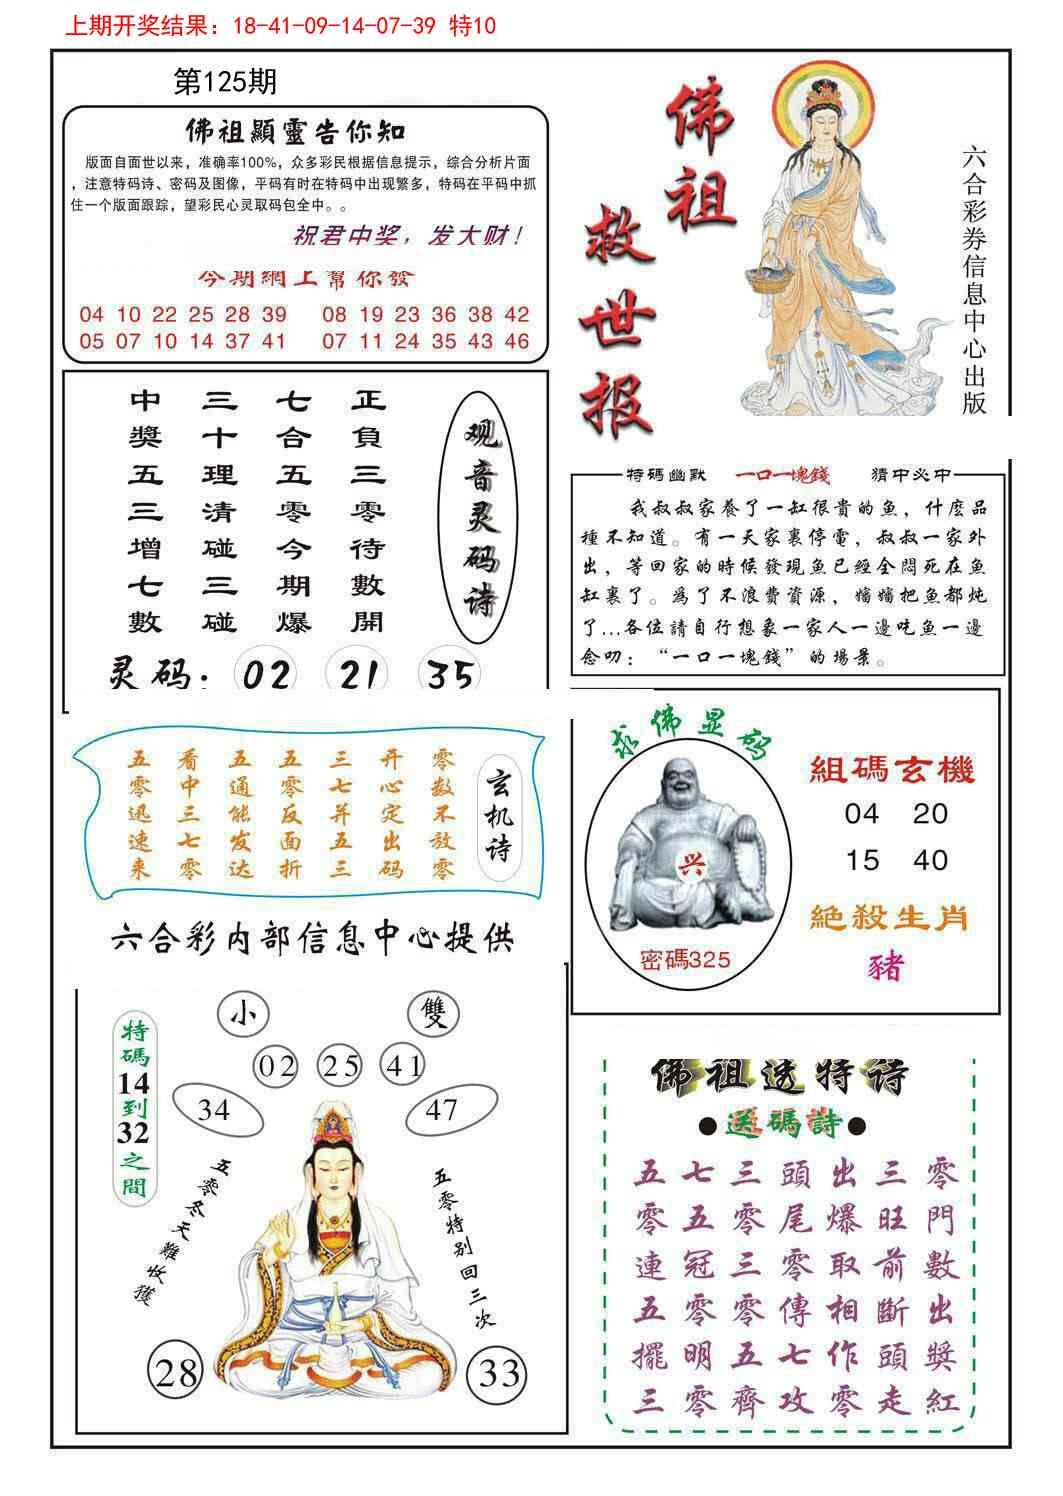 上期开奖结果：18-41-09-14-07-39 特10
第125期
佛祖顯靈告你知
版面自面世以来，准确率100%，众多彩民根据信息提示，综合分析片面
，注意特码诗、密码及图像，平码有时在特码中出现繁多，特码在平码中抓
住一个版面跟踪，望彩民心灵取码包全中。。
祝君中奖，发大财！
今期網上幫你發
04 10 22 25 28 39 08 19 23 36 38 42
05 07 10 14 37 41 07 11 24 35 43 46
佛祖
救世报
六合彩券信息中心出版
观音灵码诗
正負三零待數開
七合五零今期爆
三十理清碰三碰
中獎五三增七數
灵码：02 21 35
特碼幽默 一口一塊錢 猜中必中
我叔叔家養了一缸很貴的鱼，什麽品
種不知道。有一天家裏停電，叔叔一家外
出，等回家的時候發現鱼已經全悶死在鱼
缸裏了。爲了不浪費資源，嬸嬸把鱼都炖
了...各位請自行想象一家人一邊吃鱼一邊
念叨：“一口一塊錢”的場景。
玄机诗
零数不放零
开心定出码
三七并五三
五零反面折
五通能发达
看中三七零
五零迅速来
六合彩内部信息中心提供
求佛显码
兴
密碼325
組碼玄機
04 20
15 40
絕殺生肖
豬
特碼14到32之間
小 雙
02 25 41
34 47
五零冬天難收獲
五零特别回三次
28 33
佛祖透特诗
●送碼詩●
五七三頭出三零
零五零尾爆旺門
連冠三零取前數
五零零傳相斷出
擺明五七作頭獎
三零齊攻零走紅